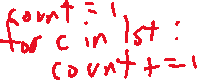 count = 1
for c in lst :
count += 1